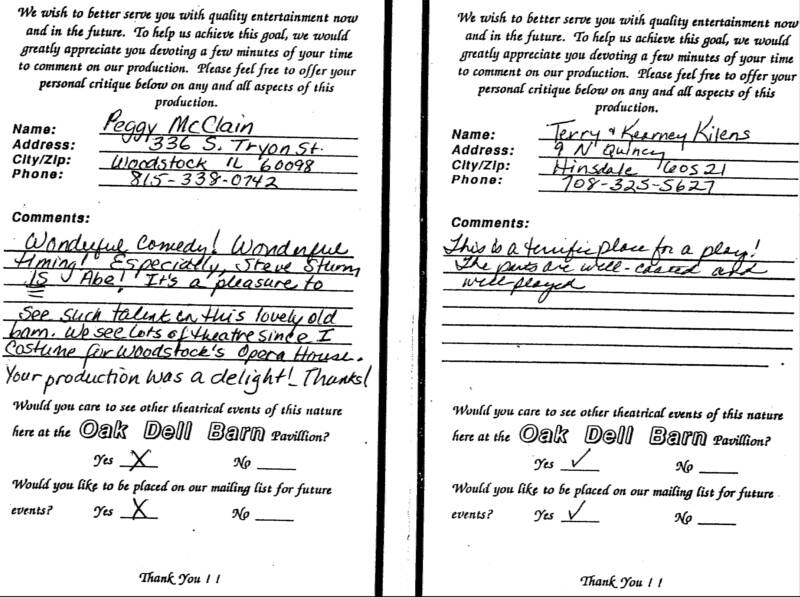 We wish to better serve you with quality entertainment now
and in the future. To help us achieve this goal, we would
greatly appreciate you devoting a few minutes of your time
to comment on our production. Please feel free to offer your
personal critique below on any and all aspects of this
production.
Name: Peggy McClain
Address: 336 S. Tryon St.
City/Zip: Woodstock IL 60098
Phone: 815-338-0742
Comments:
Wonderful Comedy! Wonderful
timing! Especially, Steve Sturm
IS Abe! It's a pleasure to
see such talent in this lovely old
barn. We see lots of theatre since I
costume for Woodstock's Opera House.
Your production was a delight! Thanks!
Would you care to see other theatrical events of this nature
here at the Oak Dell Barn Pavillion?
Yes X No ____
Would you like to be placed on our mailing list for future
events? Yes X No ____
Thank You ! !
We wish to better serve you with quality entertainment now
and in the future. To help us achieve this goal, we would
greatly appreciate you devoting a few minutes of your time
to comment on our production. Please feel free to offer your
personal critique below on any and all aspects of this
production.
Name: Terry & Kearney Kilens
Address: 9 N Quincy
City/Zip: Hinsdale 60521
Phone: 708-325-5627
Comments:
This is a terrific place for a play!
The parts are well-casted and
well-played
Would you care to see other theatrical events of this nature
here at the Oak Dell Barn Pavillion?
Yes ✓ No ____
Would you like to be placed on our mailing list for future
events? Yes ✓ No ____
Thank You ! !